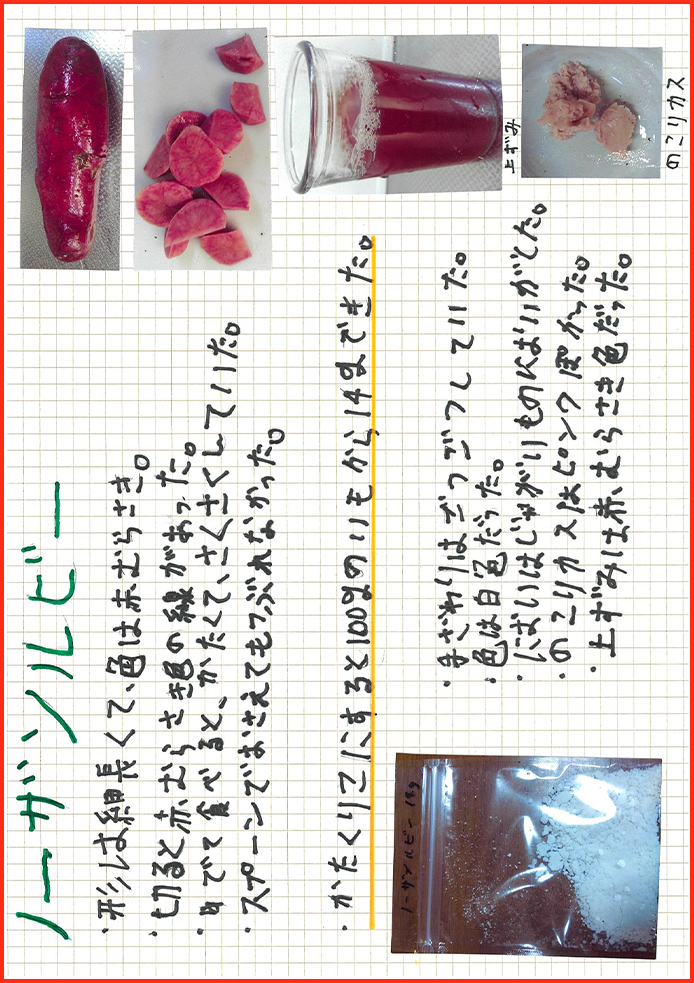 ノーザンルビー
・形は細長くて、色は赤むらさき。
・切ると赤むらさき色の線があった。
・ゆでて食べると、かたくて、さくさくしていた。
スプーンでおさえてもつぶれなかった。
・かたくりこにすると100gのいもから14gできた。
・手ざわりはごつごつしていた。
・色は白色だった。
・においはじゃがいものにおいがした。
・のこりカスはピンクぽかった。
・上ずみは赤むらさき色だった。
上ずみ
のこりカス
ノーザンルビー 14g